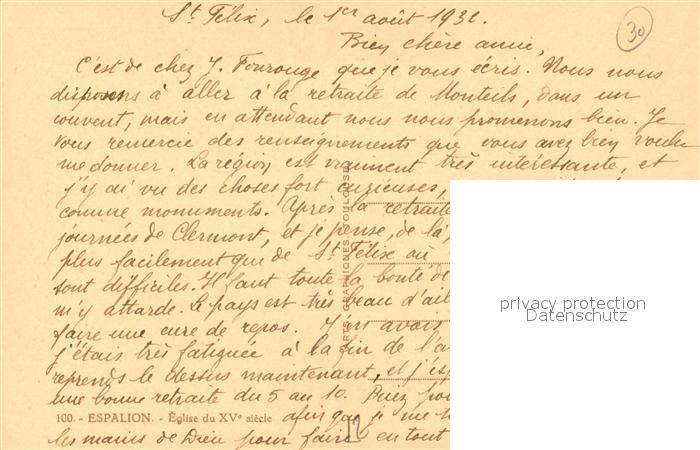 St Félix, le 1er août 1932.
30
Bien chère amie,
C'est de chez J. Fourouge que je vous écris. Nous nous
disposons à aller à la retraite de Monteils, dans un
couvent, mais en attendant nous nous promenons bien. Je
vous remercie des renseignements que vous avez bien voulu
me donner. La région est vraiment très intéressante, et
j'y ai vu des choses fort curieuses,
comme monuments. Après la retraite
journées de Clermont, et je pense, de là,
plus facilement que de St Félix où
sont difficiles. Il faut toute la bonté de
m'y attarde. Le pays est très beau d'ail
faire une cure de repos. J'en avais
j'étais très fatiguée à la fin de l'a
reprends le dessus maintenant, et j'esp
une bonne retraite du 5 au 10. Priez pou
100. - ESPALION. - Église du XVe siècle
afin que je me
les mains de Dieu pour faire en tout
ARTS GRAPHIQUES TOULOUSE
12
privacy protection
Datenschutz